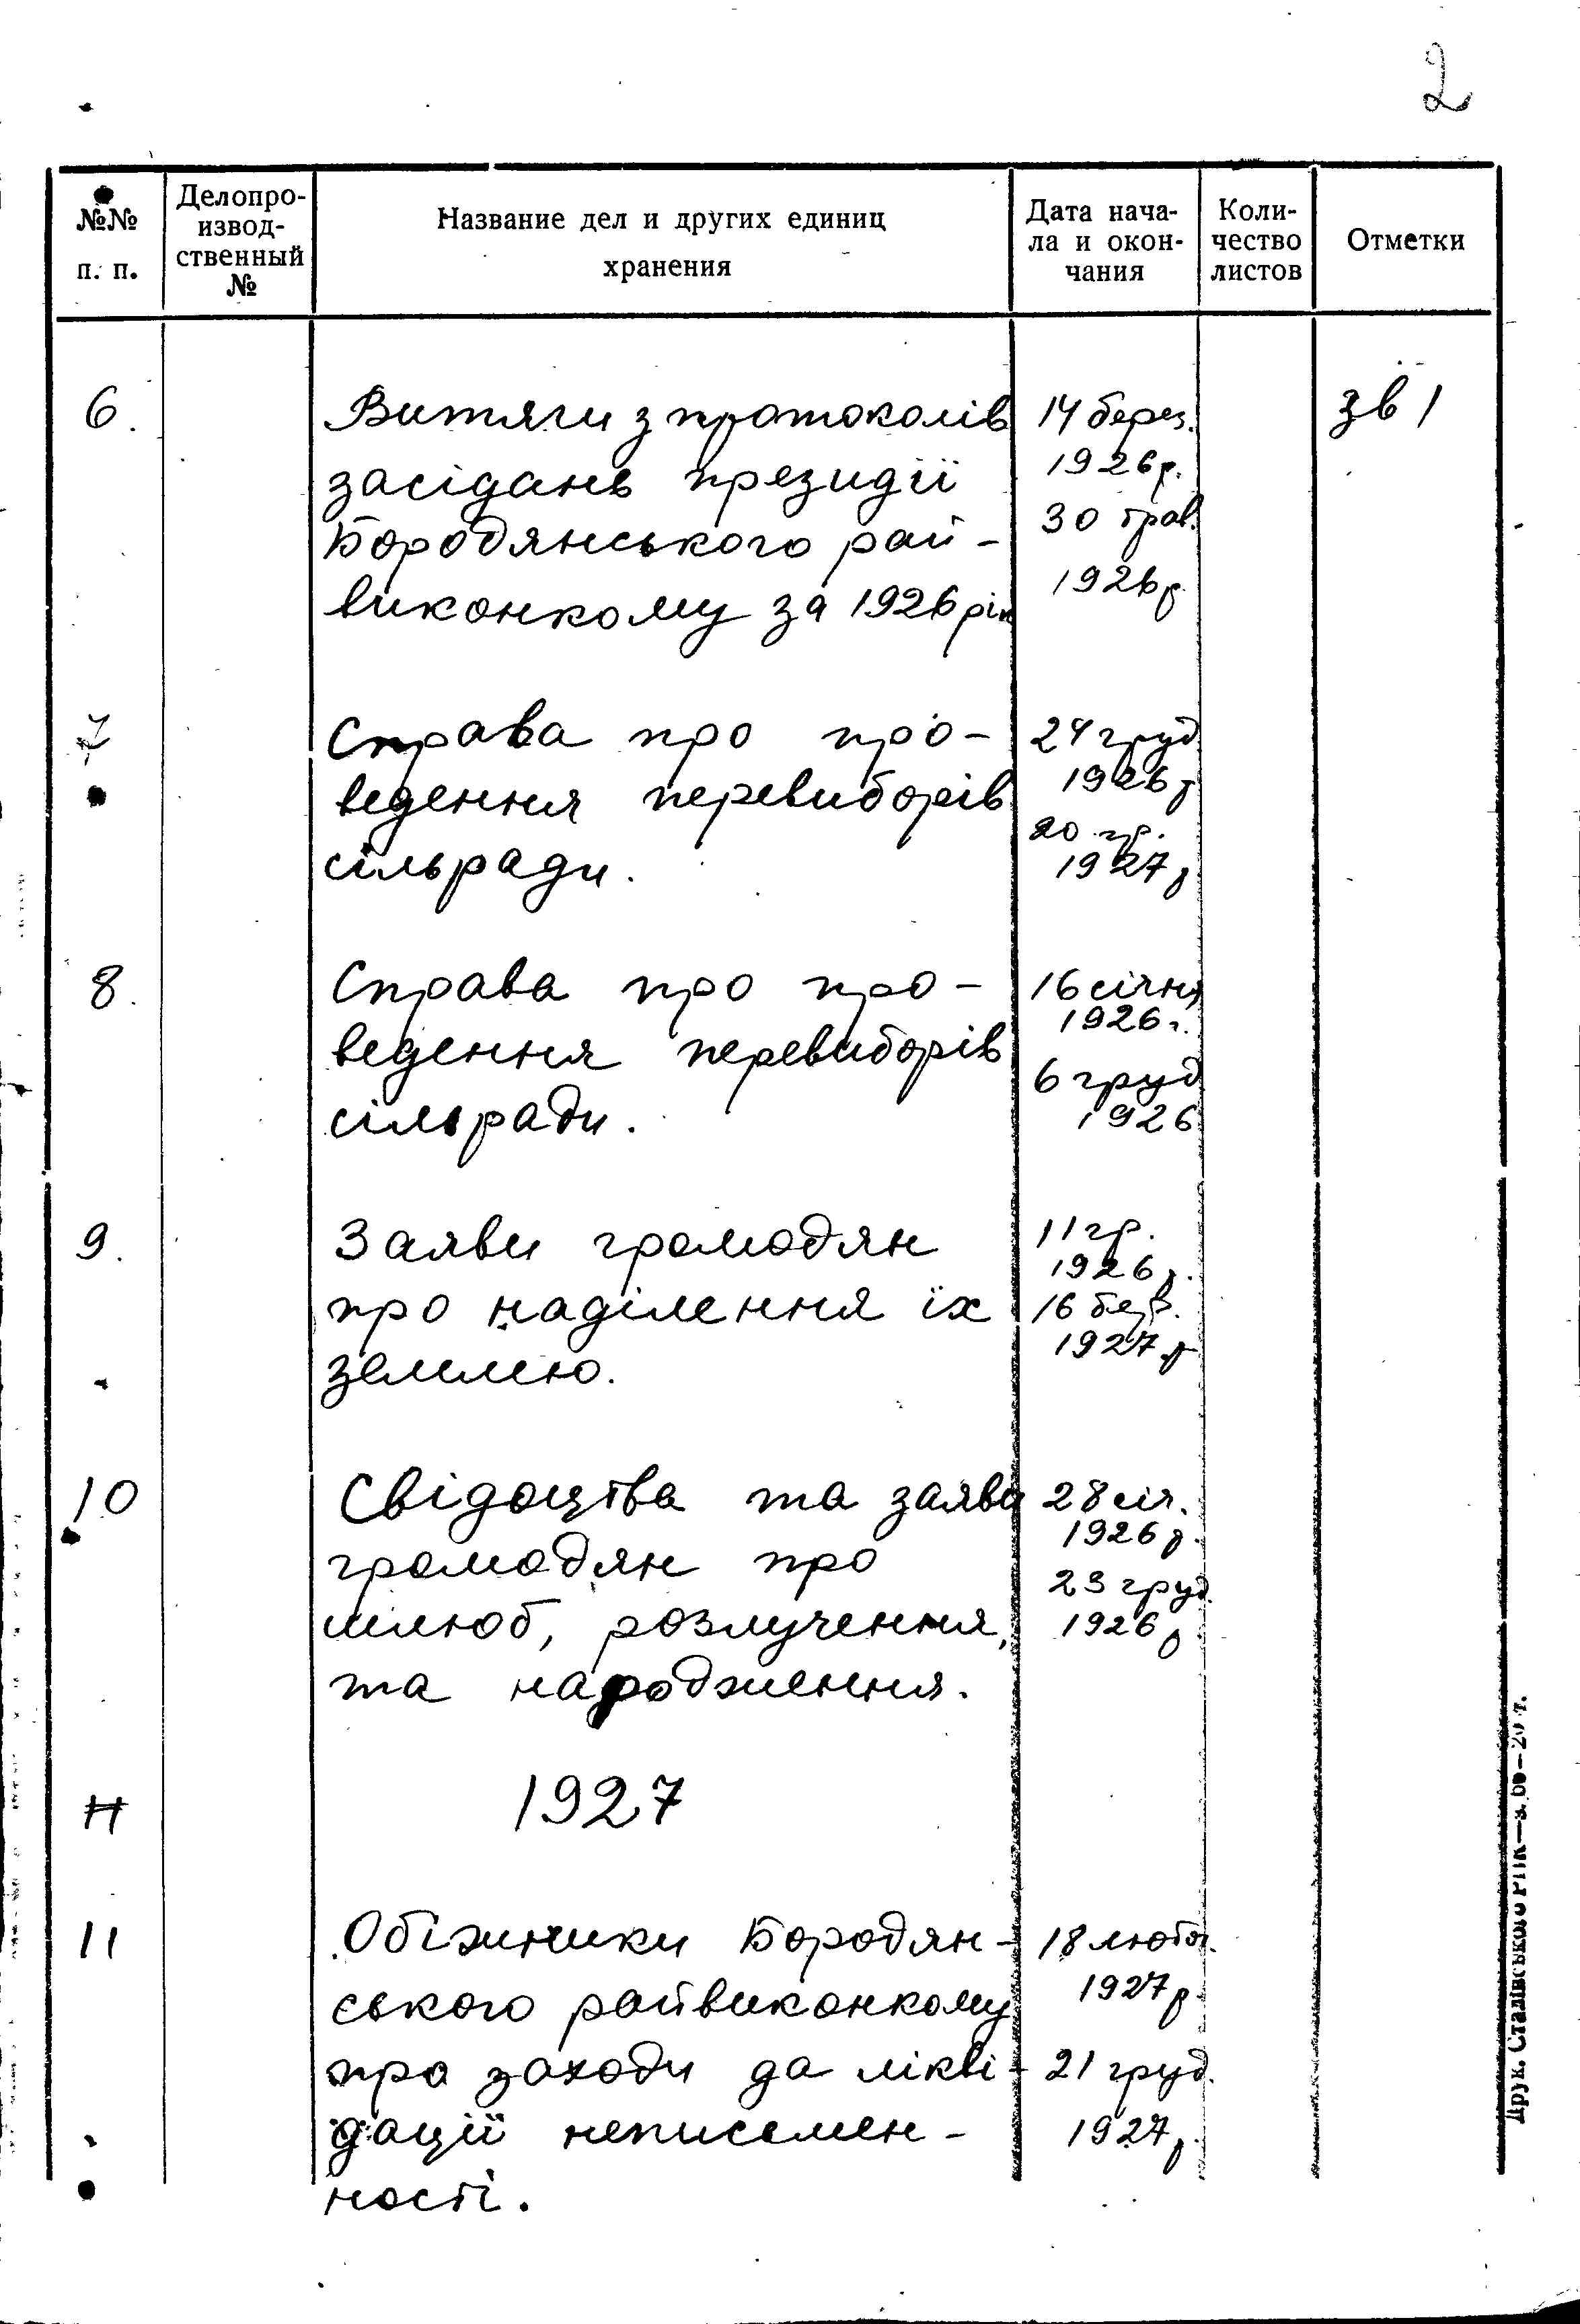 2
№№
п. п.
Делопро-
извод-
ственный
№
Название дел и других единиц
хранения
Дата нача-
ла и окон-
чания
Коли-
чество
листов
Отметки
6.
Витяги з протоколів
засідань президії
Бородянського рай-
виконкому за 1926 рік
14 берез.
1926р.
30 трав.
1926р
зв 1
7
Справа про про-
ведення перевиборів
сільради.
24 груд
1926 р
20 гр.
1927 р
8.
Справа про про-
ведення перевиборів
сільради.
16 січня
1926 г.
6 груд
1926
9.
Заяви громадян
про наділення їх
землею.
11 гр.
1926 р.
16 бер.
1927 р
10
Свідоцтва та заяви
громадян про
шлюб, розлучення,
та народження.
28 січ.
1926 р.
23 груд.
1926 р
11
1927
11
Обіжники Бородян-
ського райвиконкому
про заходи да лікві-
дації неписемен-
ності.
18 лютог.
1927 р.
21 груд.
1927 р.
Друк. Сталінського РПК—з.